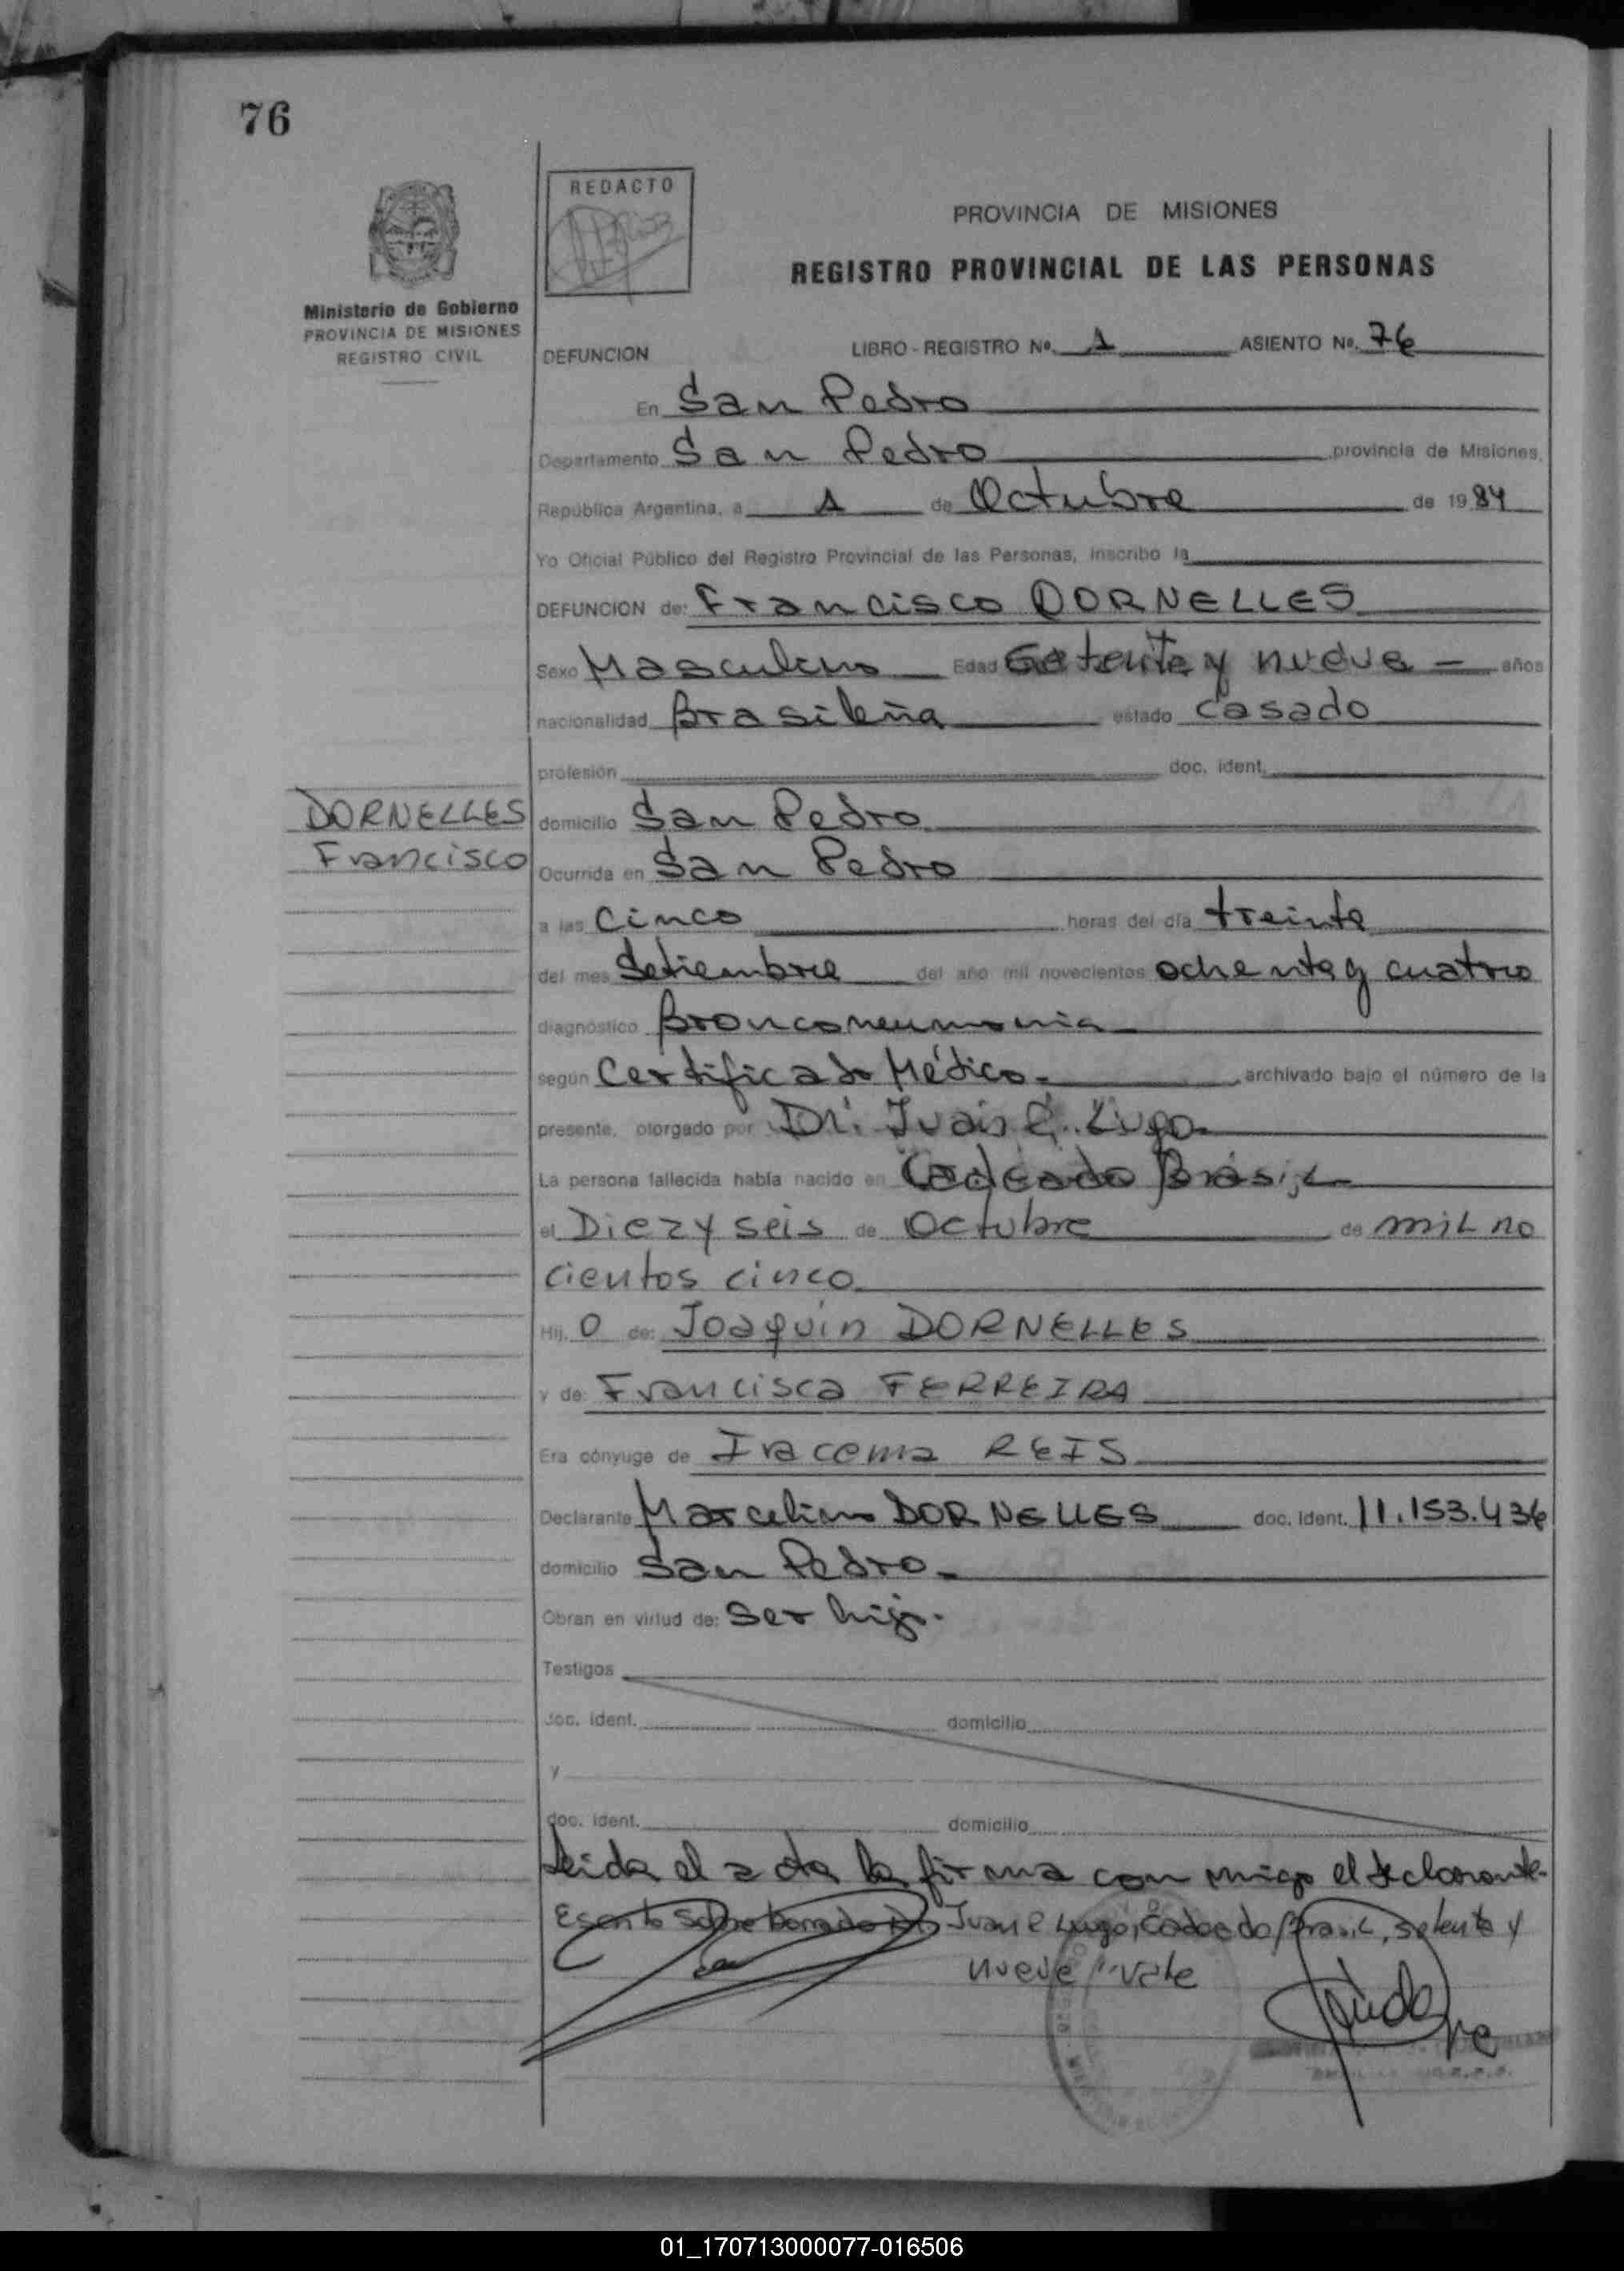 76
REDACTO
PROVINCIA DE MISIONES
REGISTRO PROVINCIAL DE LAS PERSONAS
Ministerio de Gobierno
PROVINCIA DE MISIONES
REGISTRO CIVIL
DEFUNCION LIBRO - REGISTRO Nº. 1 ASIENTO Nº. 76
En San Pedro
Departamento San Pedro provincia de Misiones,
República Argentina, a 1 de Octubre de 1984
Yo Oficial Público del Registro Provincial de las Personas, inscribo la
DEFUNCION de: Francisco DORNELLES
Sexo Masculino Edad Setenta y nueve años
nacionalidad Brasileña estado Casado
profesión doc. ident.
DORNELLES
Francisco
domicilio San Pedro
Ocurrida en San Pedro
a las Cinco horas del día treinta
del mes Setiembre del año mil novecientos ochenta y cuatro
diagnóstico Bronconeumonia
según Certificado Médico.- archivado bajo el número de la
presente, otorgado por Dr. Juan C. Lugo.
La persona fallecida había nacido en Cadeado Brasil
el Diez y seis de Octubre de mil no
cientos cinco
Hij o de: Joaquin DORNELLES
y de: Francisca FERREIRA
Era cónyuge de Iracema REIS
Declarante Marcelino DORNELLES doc. ident. 11.153.436
domicilio San Pedro.
Obran en virtud de: Ser hijo.
Testigos
doc. ident. domicilio
y
doc. ident. domicilio
Leida el acta la firma con migo el declarante.
Escrito sobre borrado Dr Juan C Lugo, Cadeado Brasil, setenta y
nueve "Vale
01_170713000077-016506